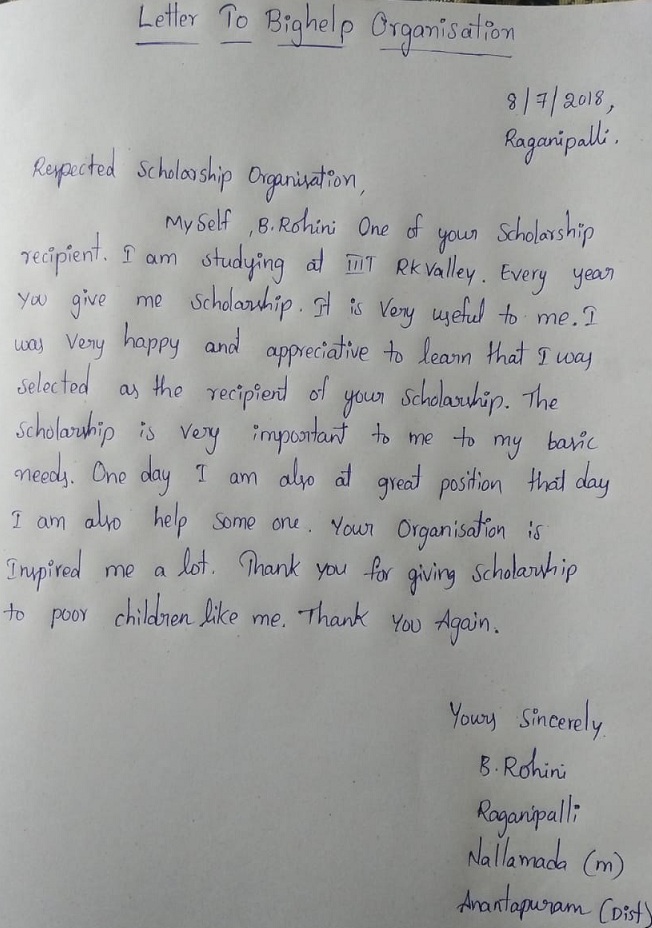 Letter To Bighelp Organisation
8/7/2018,
Raganipalli.
Respected Scholarship Organisation,
My Self , B. Rohini One of your Scholarship
recipient. I am studying at IIIT RK Valley. Every year
you give me Scholarship. It is Very useful to me. I
was Very happy and appreciative to learn that I was
Selected as the recipient of your Scholarship. The
Scholarship is Very important to me to my basic
needs. One day I am also at great position that day
I am also help Some one. Your Organisation is
Inspired me a lot. Thank you for giving Scholarship
to poor children like me. Thank You Again.
Yours Sincerely
B. Rohini
Raganipalli
Nallamada (m)
Anantapuram (Dist)